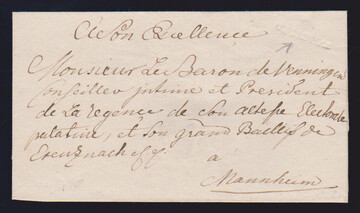 A Son Excellence
Monsieur Le Baron de Venningen
Conseiller intime et President
de La regence de Son altesse Electorale
palatine, et Son grand Baillif de
Creuznach &c.
a
Mannheim